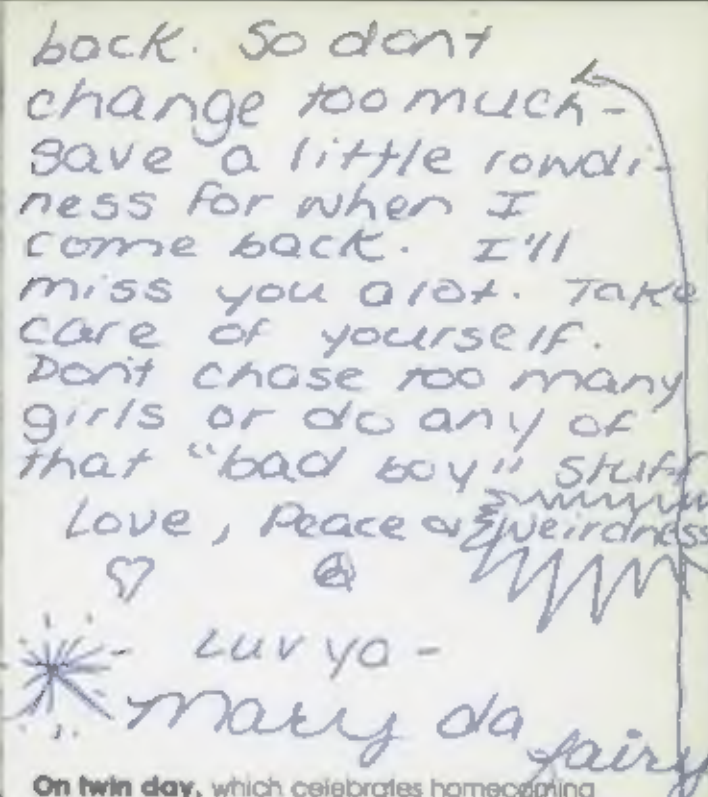 back. So dont
change too much-
save a little rowdi-
ness for when I
come back. I'll
miss you alot. Take
care of yourself.
Don't chase too many
girls or do any of
that "bad boy" stuff
Love, Peace & Weirdness
Luv ya -
Mary da fairy
On twin day, which celebrates homecoming